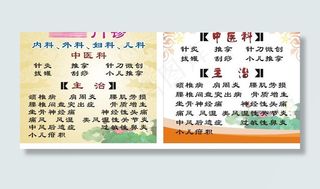 门诊
内科、外科、妇科、儿科
中医科
针灸 推拿 针刀微创
拔罐 刮痧 小儿推拿
【主治】
颈椎病 肩周炎 腰肌劳损
腰椎间盘突出症 骨质增生
坐骨神经痛 神经性头痛
痛风 风湿 类风湿性关节炎
中风后遗症 过敏性鼻炎
小儿疳积
【中医科】
针灸 推拿 针刀微创
拔罐 刮痧 小儿推拿
【主治】
颈椎病 肩周炎 腰肌劳损
腰椎间盘突出病 骨质增生
坐骨神经痛 神经性头痛
痛风 风湿 类风湿性关节炎
中风后遗症 过敏性鼻炎
小儿疳积